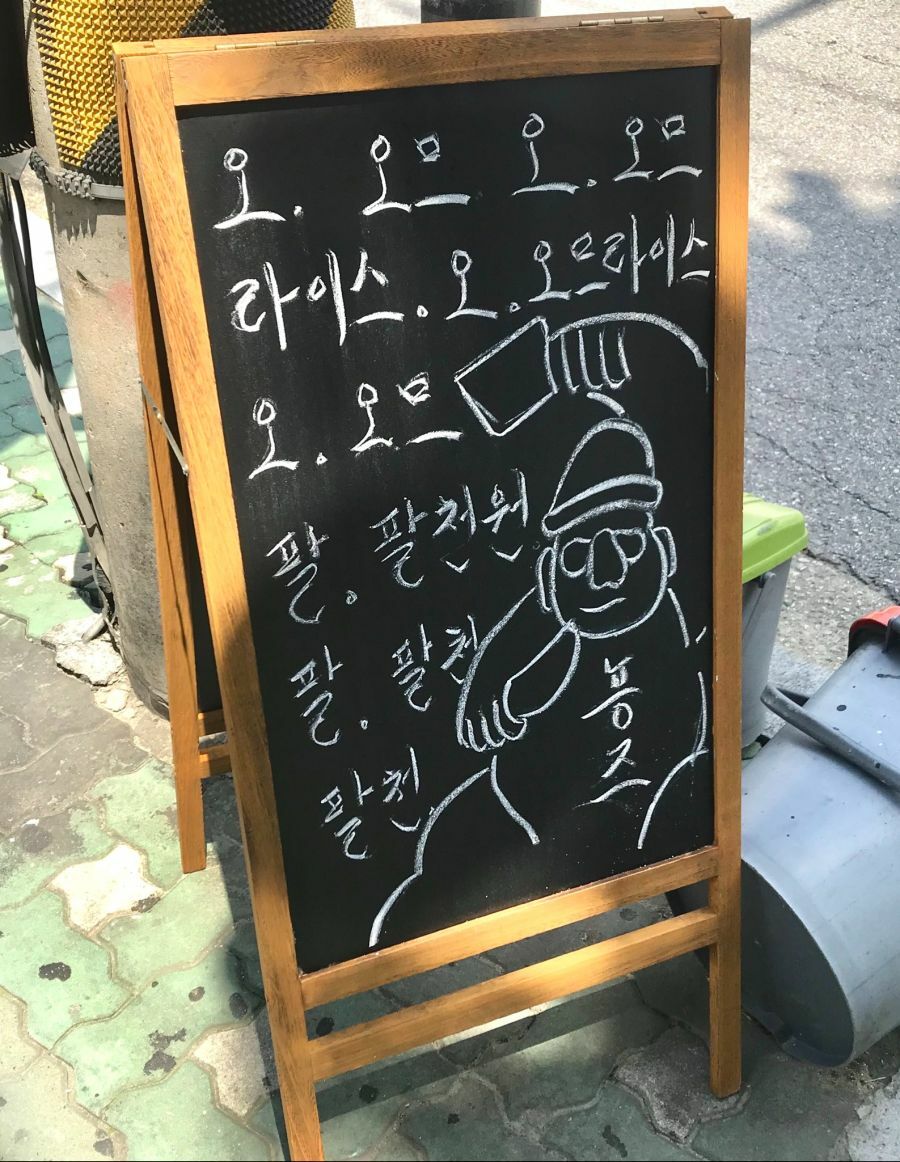 오. 오므 오. 오므
라이스. 오. 오므라이스
오. 오므
팔. 팔천원.
팔. 팔천
팔천
봉
즈